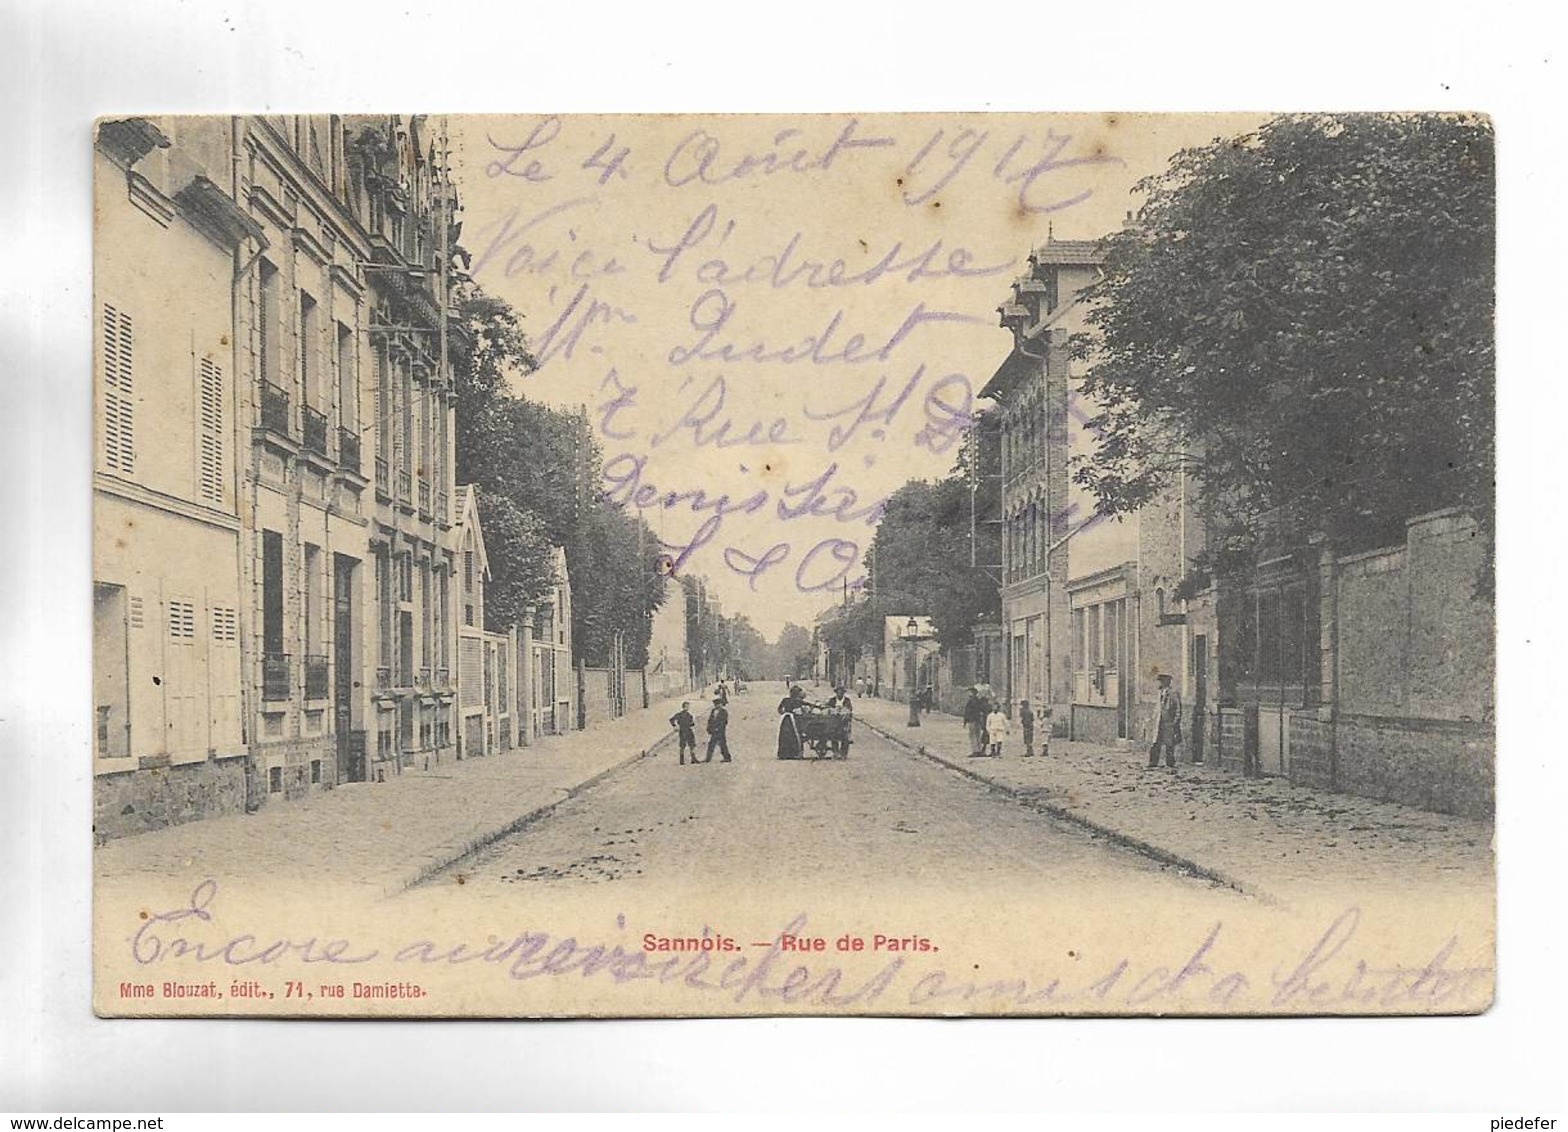 Le 4 Août 1917
Voici l'adresse
Mr. Pudet
7 Rue St D
Denis
S & O
Encore au revoir chers amis et a bientot
Sannois. — Rue de Paris.
Mme Blouzat, édit., 71, rue Damiette.
delcampe.net
piedefer